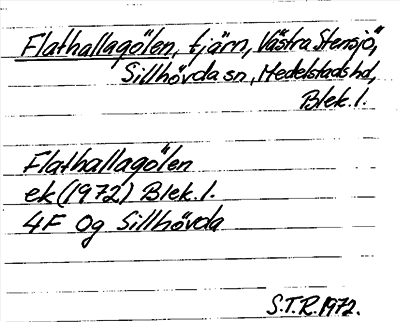 Flathallagölen, tjärn, Västra Stensjö,
Sillhövda sn, Medelstads hd,
Blek. l.
Flathallagölen
ek (1972) Blek. l.
4F 0g Sillhövda
S.T.R. 1972.